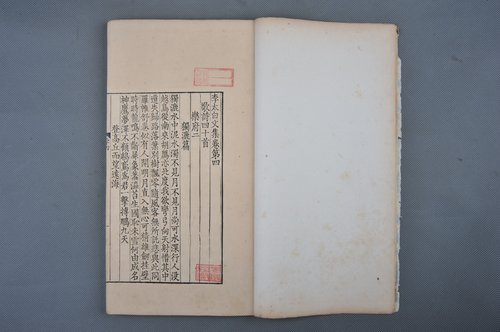 李太白文集卷第四
歌詩四十首
樂府二
獨漉篇
獨漉水中泥水濁不見月不見月尚可水深行人沒
越鳥從南來胡鷹亦北度我欲彎弓向天射惜其中
道失歸路落葉別樹飄零隨風客無所託悲與此同
羅幃舒卷似有人開明月直入無心可猜雄劍挂壁
時時龍鳴不斷犀象繡澀苔生國恥未雪何由成名
神鷹夢澤不顧鴟鳶為君一擊搏鵬九天
登高丘而望遠海